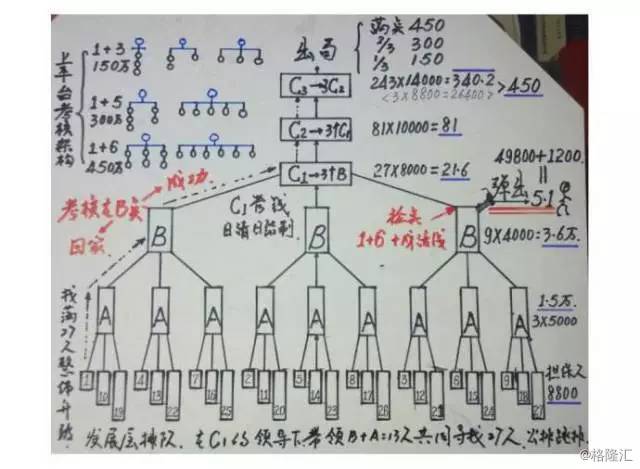 上平台考核架构
1+3
150万
1+5
300万
1+6
450万
出局
满点 450
2/3 300
1/3 150
243×14000=340.2
>450
<3×8800=26400>
C3→3C2
C2→3个C1
81×10000=81
C1→3个B
27×8000=21.6
49800+1200
弹出 5.1
成功
考核在B点
回家
C1带线
日清日结制
捡点
1+6+成活线
B
B
B
9×4000=3.6万
A A A A A A A A A
1.5万
3×5000
找满27人整体升级
1 10 19 4 13 22 7 16 25 2 11 20 5 14 23 8 17 26 3 12 21 6 15 24 9 18 27
担练人
8800
发展层排队 在C1的领导下带领B+A=13人共同寻找27人 公排跳排
@格隆汇